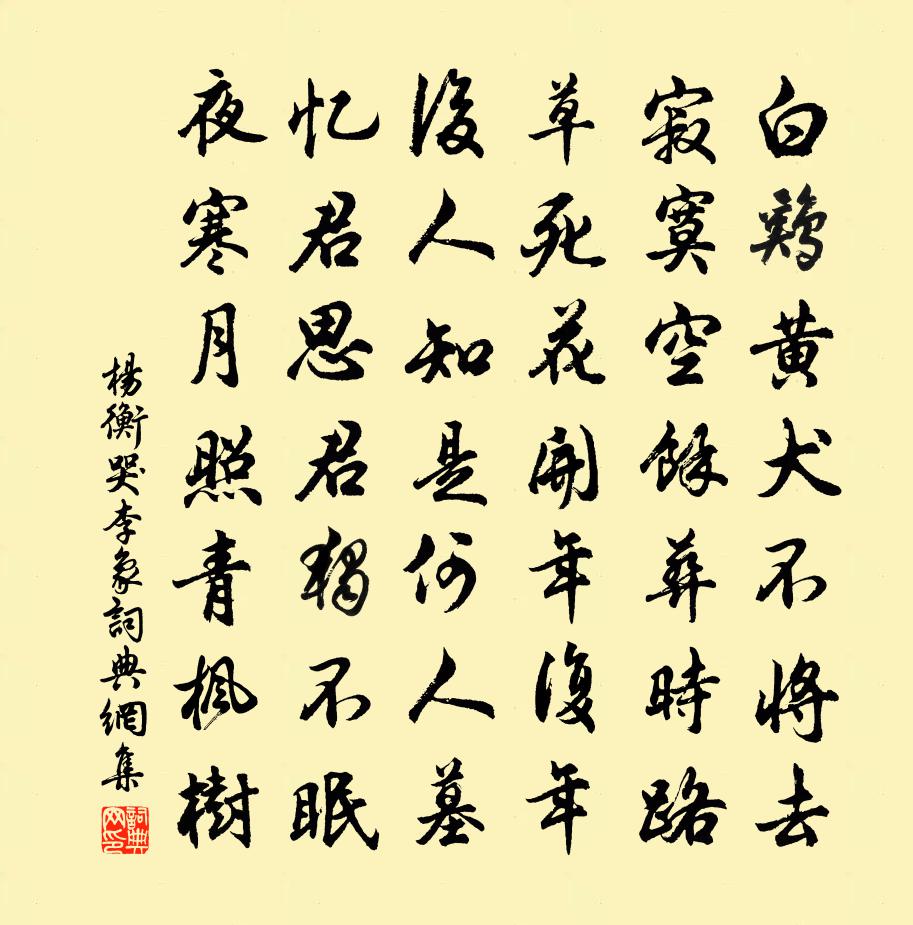 白鷄黄犬不將去
寂寞空餘葬時路
草死花開年復年
後人知是何人墓
忆君思君獨不眠
夜寒月照青楓樹
楊衡哭李象詞典網集
詞典
网印